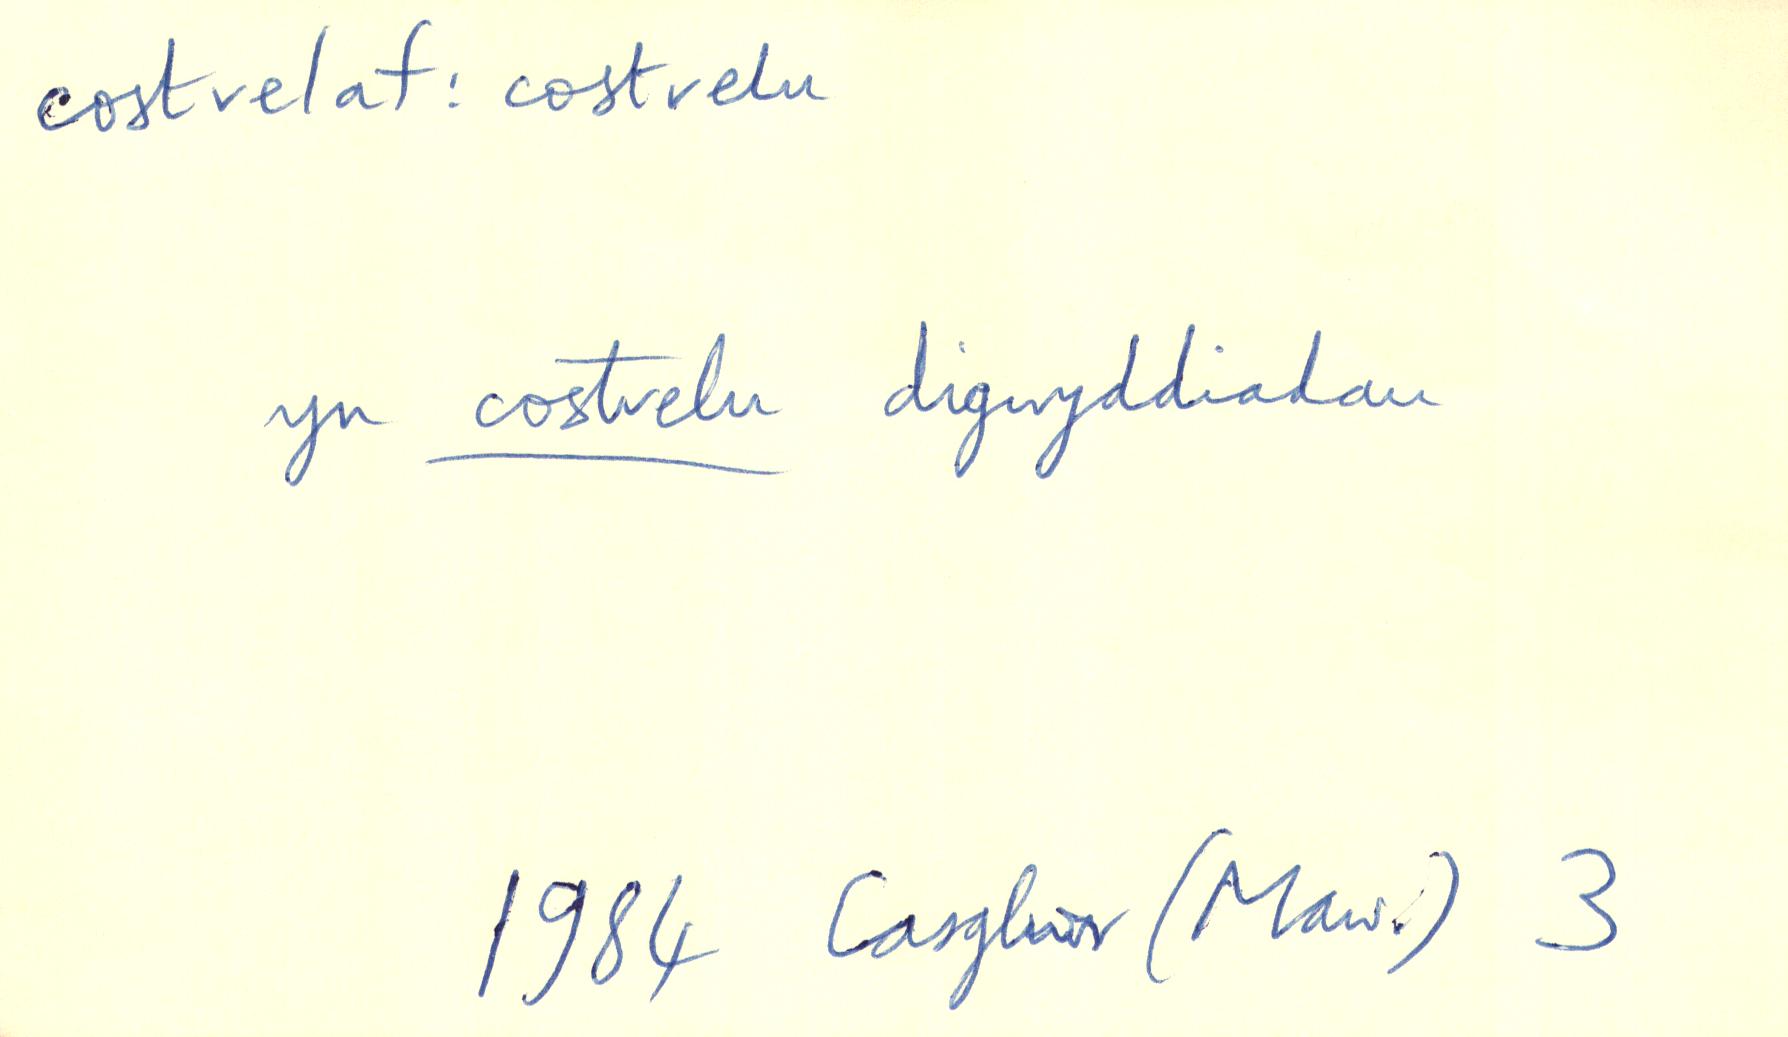 costrelaf: costrelu
yn costrelu digwyddiadau
1984 Casglwr (Maw.) 3